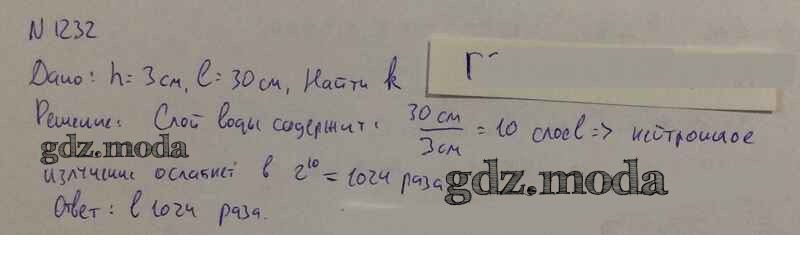 N 1232
Дано: h = 3 см, l = 30 см, Найти k
Решение: Слой воды содержит: 30 см / 3 см = 10 слоёв => нейтронное
gdz.moda
излучение ослабнет в 2^10 = 1024 раза
gdz.moda
Ответ: в 1024 раза.